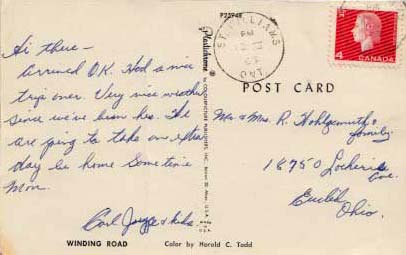 P25948
Hi there -
Arrived O.K. Had a nice
trip over. Very nice weather
since we've been here. We
are going to take an extra
day be home Sometime
Mon.
Carl Joyce & kids
WINDING ROAD
Color by Harold C. Todd
Plastichrome
®
by COLOURPICTURE PUBLISHERS, INC.
ST. WILLIAMS
PM
ONT
4
CANADA
POST CARD
Mr & Mrs. R. Hohlgemuth &
family
18750 Locherie
Ave.
Euclid,
Ohio.